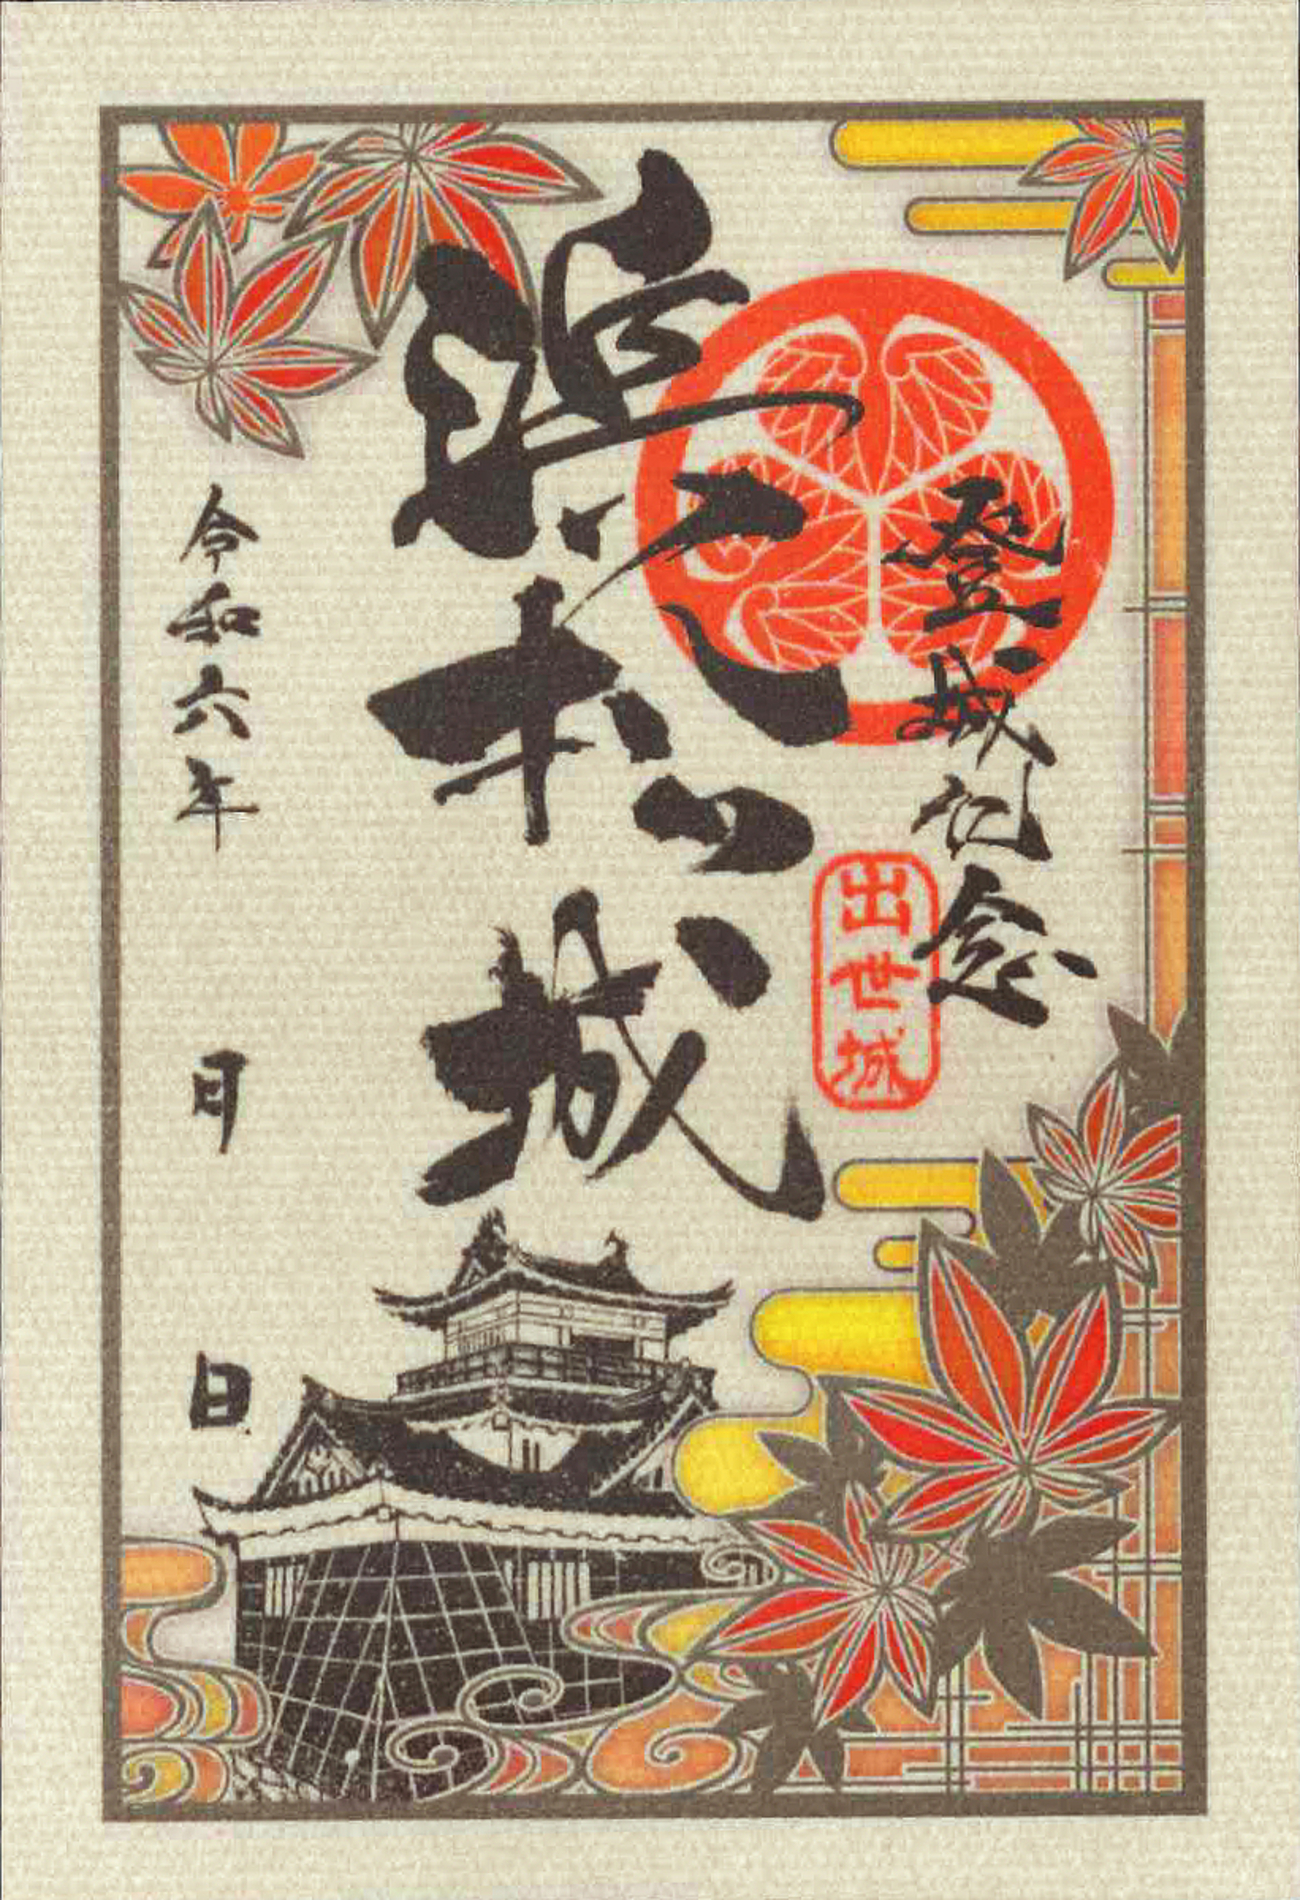 登城記念
出世城
浜松城
令和六年
月
日